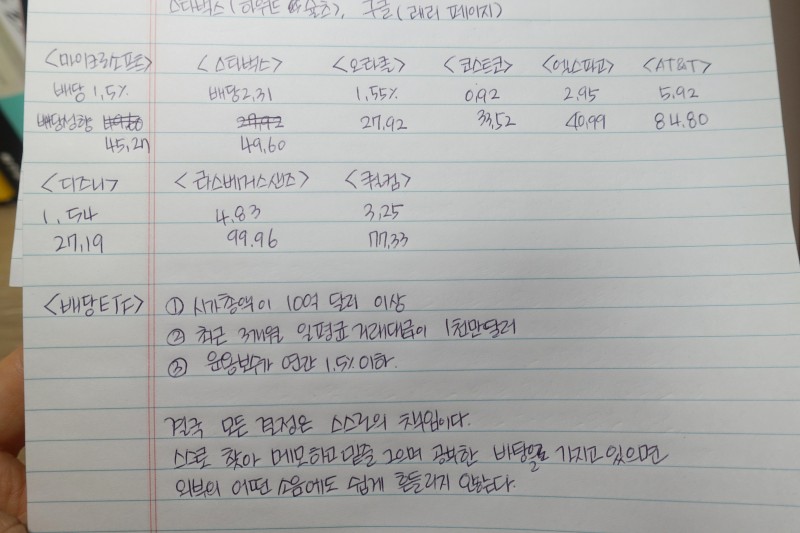 스타벅스 (하워드 슐츠), 구글 (래리 페이지)
<마이크로소프트> <스타벅스> <오라클> <코스트코> <엑스파고> <AT&T>
배당 1.5% 배당 2.31 1.55% 0.92 2.95 5.92
배당성향 27.92 33.52 40.99 84.80
45.27 49.60
<디즈니> <라스베거스샌즈> <퀄컴>
1.54 4.83 3.25
27.19 99.96 77.33
<배당ETF> ① 시가총액이 10억 달러 이상
② 최근 3개월 일평균 거래대금이 1천만달러
③ 운용보수가 연간 1.5% 이하.
결국 모든 결정은 스스로의 책임이다.
스스로 찾아 메모하고 밑줄 그으며 공부한 바탕으로 가지고 있으면
외부의 어떤 소음에도 쉽게 흔들리지 않는다.